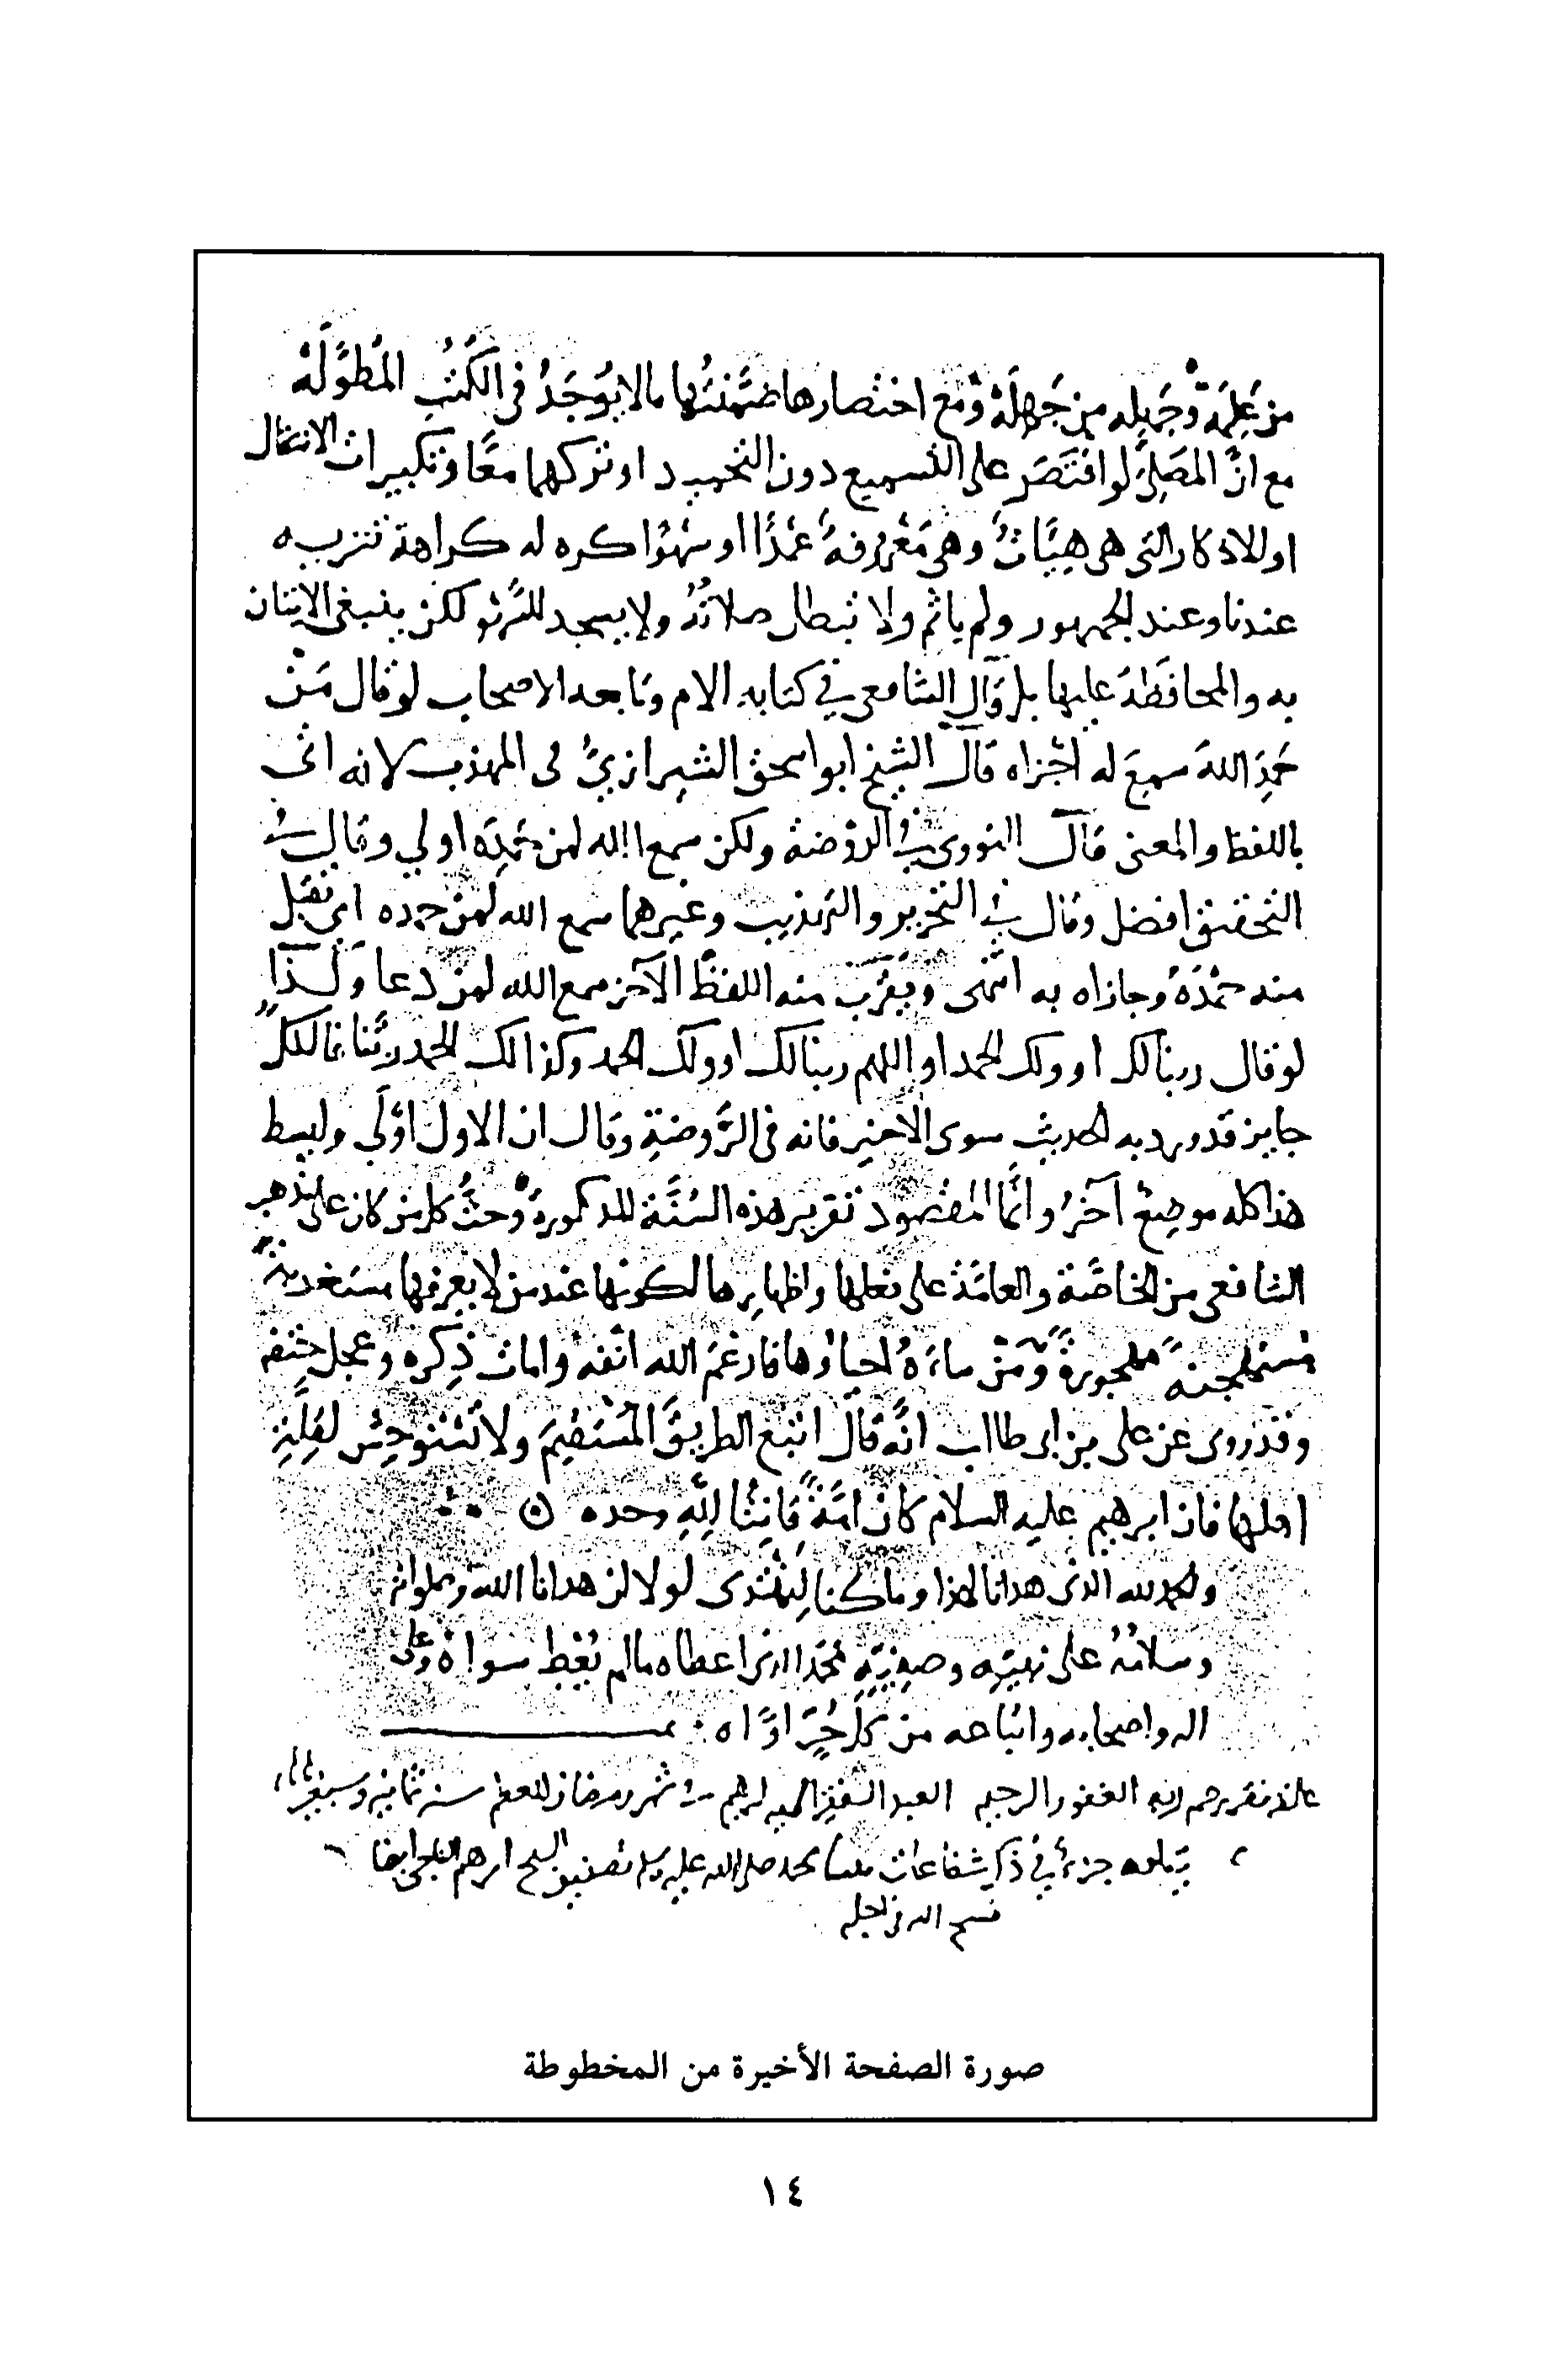 من علمه وجهله من جهله ومع اختصارها ضمنتها مالا يوجد في الكتب المُطَوَّلَة
مع انَّ المصَلِّي لو اقتَصَر على التسميع دون التحميد او تركهما معًا وتكبيرات الانتقال
او الاذكار التي هي هيئات وهي معروفة عَمْدًا او سَهْوًا كره له كراهة تنزيه
عندنا وعند الجمهور ولم ياثم ولا تبطل صلاتُهُ ولا يسجد للسهو لكن ينبغي الاتيان
به والمحافظة عليها بل قال الشافعي في كتابه الام وتابعه الاصحاب لو قال مَنْ
حَمِدَ اللهَ سمِعَ له اجزاه قال الشيخ ابو اسحق الشيرازي في المهذب لانه اتى
باللفظ والمعنى قال النووي في الروضة ولكن سمع الله لمن حَمِدَه اولى وقال في
التحقيق افضل وقال في التحرير والتهذيب وغيرهما سمع الله لمن حمده اي تقبل
منه حَمْدَهُ وجازاه به انتهى ويَقْرُبُ منه اللفظ الآخر سمع الله لمن دعا وَلِذَا
لو قال ربنا لك او ولك الحمد او اللهم ربنا لك او ولك الحمد وكذا لك الحمد ربَّنا فالكلّ
جايز قد ورد به الحديث سوى الاخير فانه في الرَّوضةِ وقال ان الاول اوْلَى ولبسط
هذا كله موضعٌ آخرُ وانَّما المقصود تقرير هذه السُّنَّة المذكورة وحثّ كل من كان على مذهب
الشافعي من الخاصَّة والعامَّة على فعلها واظهارها لكونها عند من لا يعرفها مستغربة
مستهجنةً مهجورةً ومَنْ ساءَهُ احياؤها فارغمَ الله انفه وامات ذِكره وعجل حتفه
وقد روى عن علي بن ابي طالب انَّه قال اتبع الطريقَ المُسْتَقِيمَ ولا تَسْتَوحِش لِقِلَّةِ
اهلها فان ابرهيم عليه السلام كان امَّةً قانِتًا لِلَّهِ وحده
والحمد لله الذي هدانا لهذا وما كنا لِنَهْتَدى لولا ان هدانا الله وصلواته
وسلامُهُ على نبيّه وصفيّه محمّد الذي اعطاه مالم يُعْطِ سواهُ وعلى
اله واصحابه واتباعه من كلّ حُرّ اوّاه
العبد الفقير ابرهيم في شهر رمضان المعظم سنة ثمانين وسبعمائة
يتلوه جزءٌ في ذكر شفاعات نبينا محمد صلى الله عليه وسلم تصنيف الشيخ ابرهيم ايضا
فسح الله في اجله
صورة الصفحة الأخيرة من المخطوطة
١٤